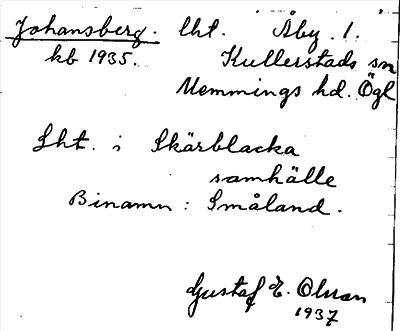 Johansberg. lht. Åby. 1.
kb 1935. Kullerstads sn
Memmings hd. Ögl
Lht. i Skärblacka
samhälle
Binamn: Småland.
Gustaf E. Olsson
1937